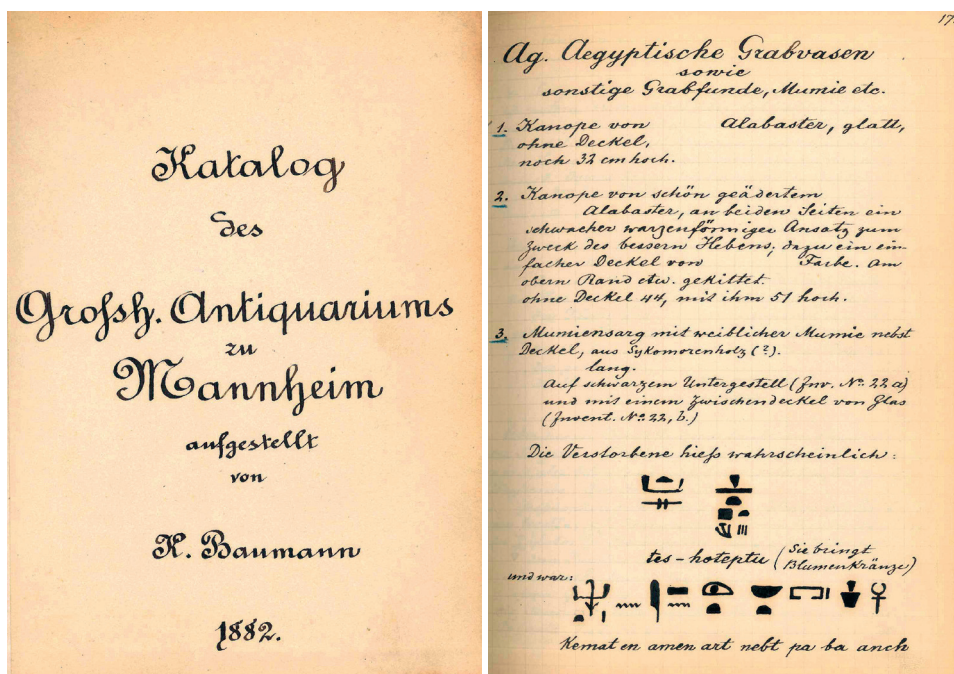 Katalog
des
Grossh. Antiquariums
zu
Mannheim
aufgestellt
von
K. Baumann
1882.
17
Ag. Aegyptische Grabvasen
sowie
sonstige Grabfunde, Mumie etc.
1. Kanope von Alabaster, glatt,
ohne Deckel,
noch 32 cm hoch.
2. Kanope von schön geädertem
Alabaster, an beiden Seiten ein
schwacher warzenförmiger Ansatz zum
Zweck des bessern Hebens; dazu ein ein-
facher Deckel von Farbe. Am
obern Rand etw. gekittet.
ohne Deckel 44, mit ihm 51 hoch.
3. Mumiensarg mit weiblicher Mumie nebst
Deckel, aus Sykomorenholz (?).
lang.
Auf schwarzem Untergestell (Inv. No. 22 a)
und mit einem Zwischendeckel von Glas
(Invent. No. 22, b.)
Die Verstorbene hiess wahrscheinlich:
tes-hoteptu (Sie bringt
Blumenkränze)
und war:
Kemat en amen art nebt pa ba anch